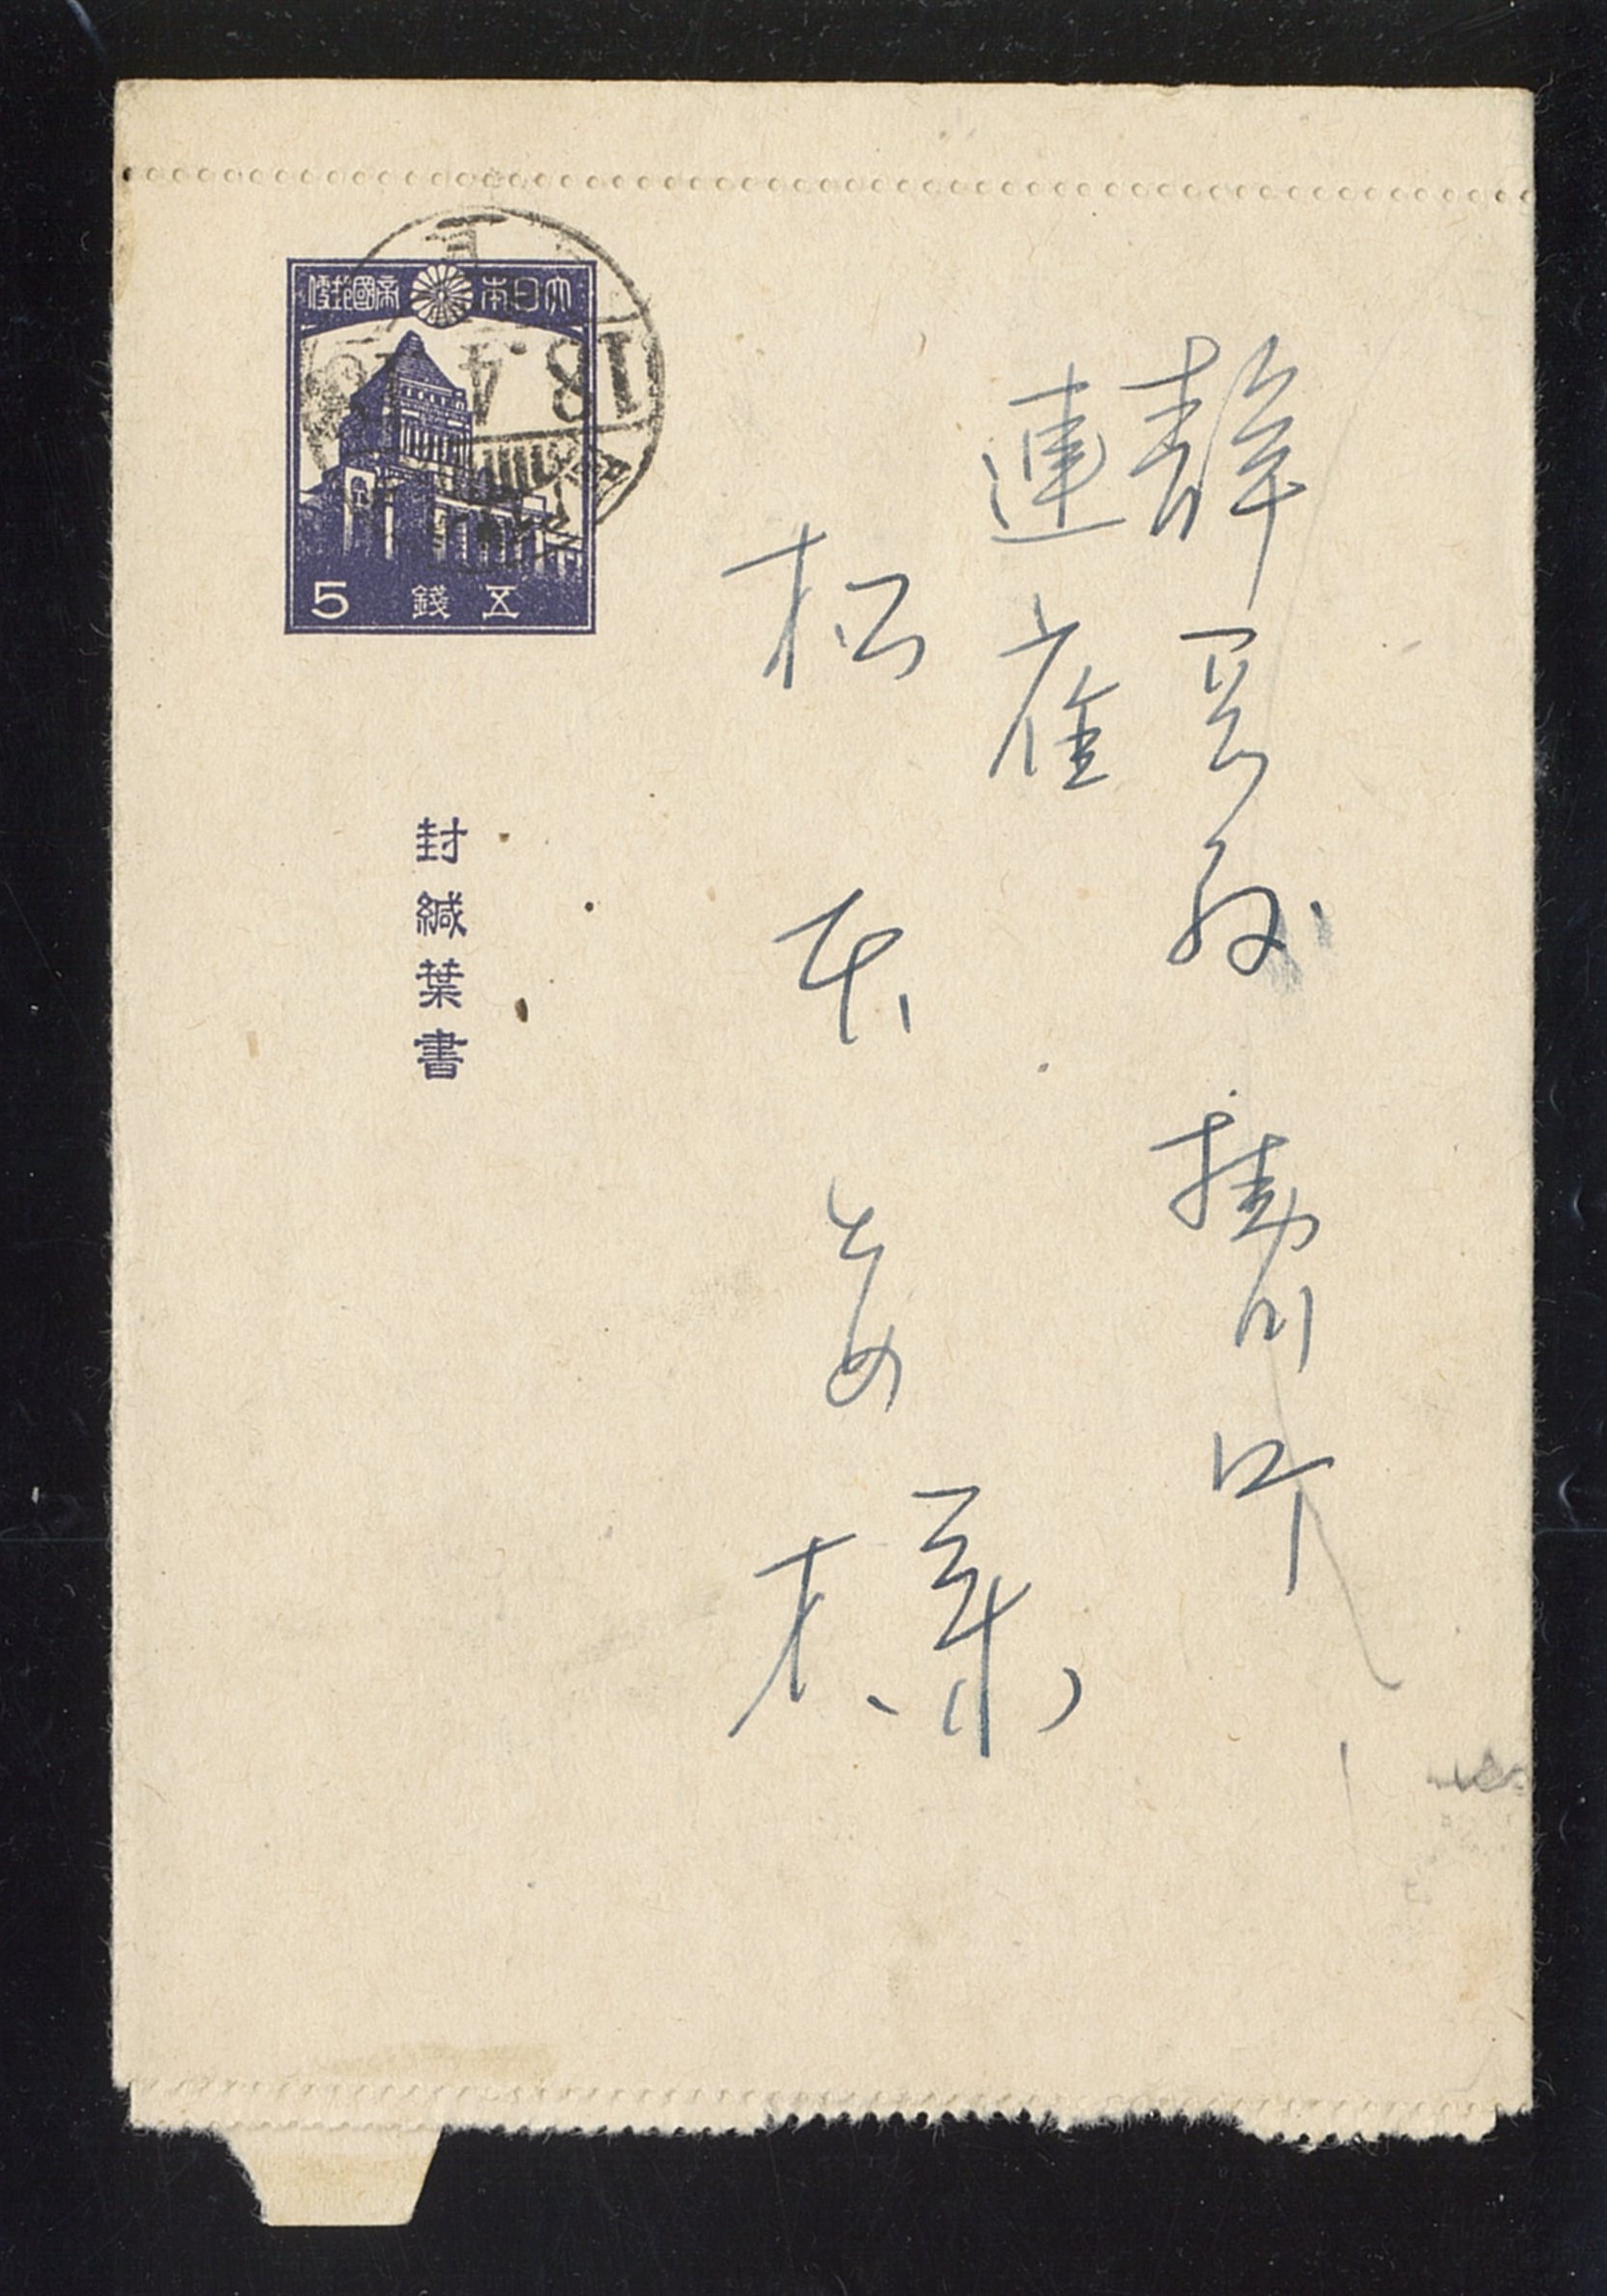 静岡縣 掛川町
連雀
松本とめ様
大日本帝國郵便
18.4
5 錢五
封緘葉書